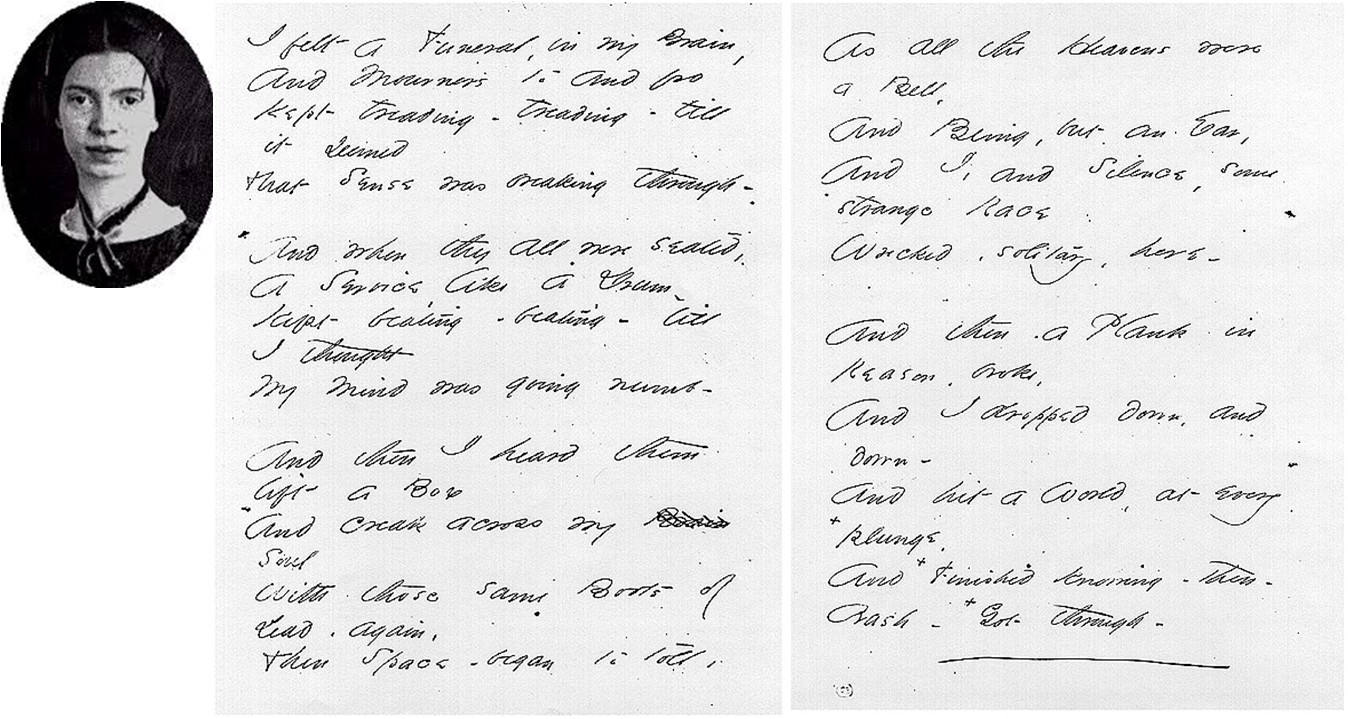 I felt a Funeral, in my Brain,
And Mourners to and fro
Kept treading - treading - till
it seemed
That Sense was breaking through -
And when they all were seated,
A Service, like a Drum -
Kept beating - beating - till
I thought
My Mind was going numb -
And then I heard them
lift a Box
And creak across my Brain
Soul
With those same Boots of
Lead, again,
Then Space - began to toll,
As all the Heavens were
a Bell,
And Being, but an Ear,
And I, and Silence, some
strange Race
Wrecked, solitary, here -
And then a Plank in
Reason, broke,
And I dropped down, and
down -
And hit a World, at every
+ Plunge,
And + Finished knowing - then -
Crash - + Got through -